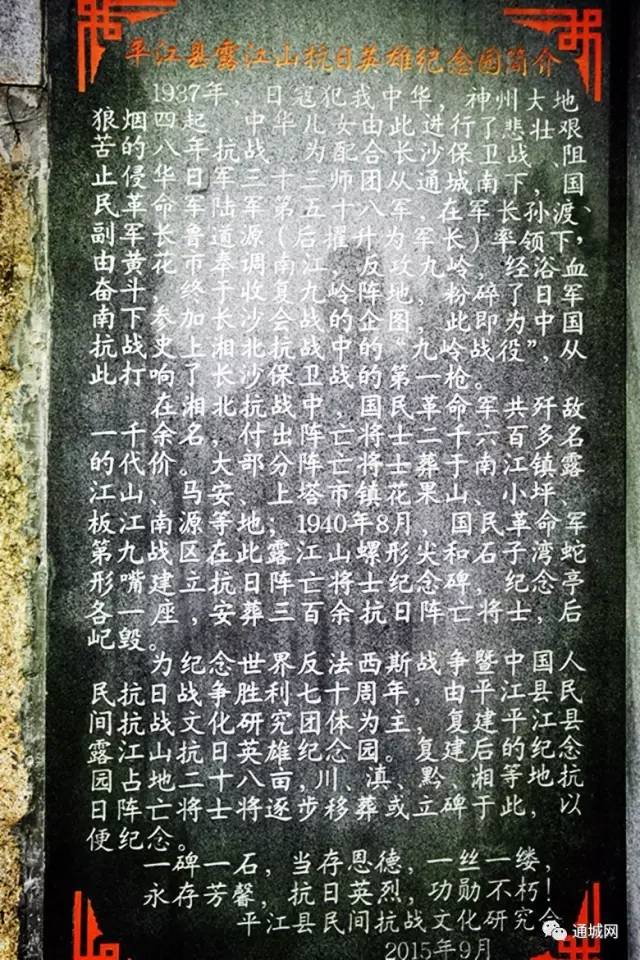 平江县露江山抗日英雄纪念园简介
1937年，日寇犯我中华，神州大地
狼烟四起　中华儿女由此进行了悲壮、艰
苦的八年抗战　为配合长沙保卫战、阻
止侵华日军三十三师团从通城南下，国
民革命军陆军第五十八军，在军长孙渡、
副军长鲁道源（后擢升为军长）率领下，
由黄花市奉调南江，反攻九岭，经浴血
奋斗，终于收复九岭阵地，粉碎了日军
南下参加长沙会战的企图，此即为中国
抗战史上湘北抗战中的“九岭战役”，从
此打响了长沙保卫战的第一枪。
在湘北抗战中，国民革命军共歼敌
一千余名，付出阵亡将士二千六百多名
的代价。大部分阵亡将士葬于南江镇露
江山、马安、上塔市镇花果山、小坪、
板江南源等地；1940年8月，国民革命军
第九战区在此露江山螺形尖和石子湾蛇
形嘴建立抗日阵亡将士纪念碑，纪念亭
各一座,安葬三百余抗日阵亡将士，后
屺毁。
为纪念世界反法西斯战争暨中国人
民抗日战争胜利七十周年，由平江县民
间抗战文化研究团体为主，复建平江县
露江山抗日英雄纪念园。复建后的纪念
园占地二十八亩,川、滇、黔、湘等地抗
日阵亡将士将逐步移葬或立碑于此，以
便纪念。
一碑一石，当存恩德，一丝一缕，
永存芳馨，抗日英烈，功勋不朽！
平江县民间抗战文化研究会
2015年9月
通城网